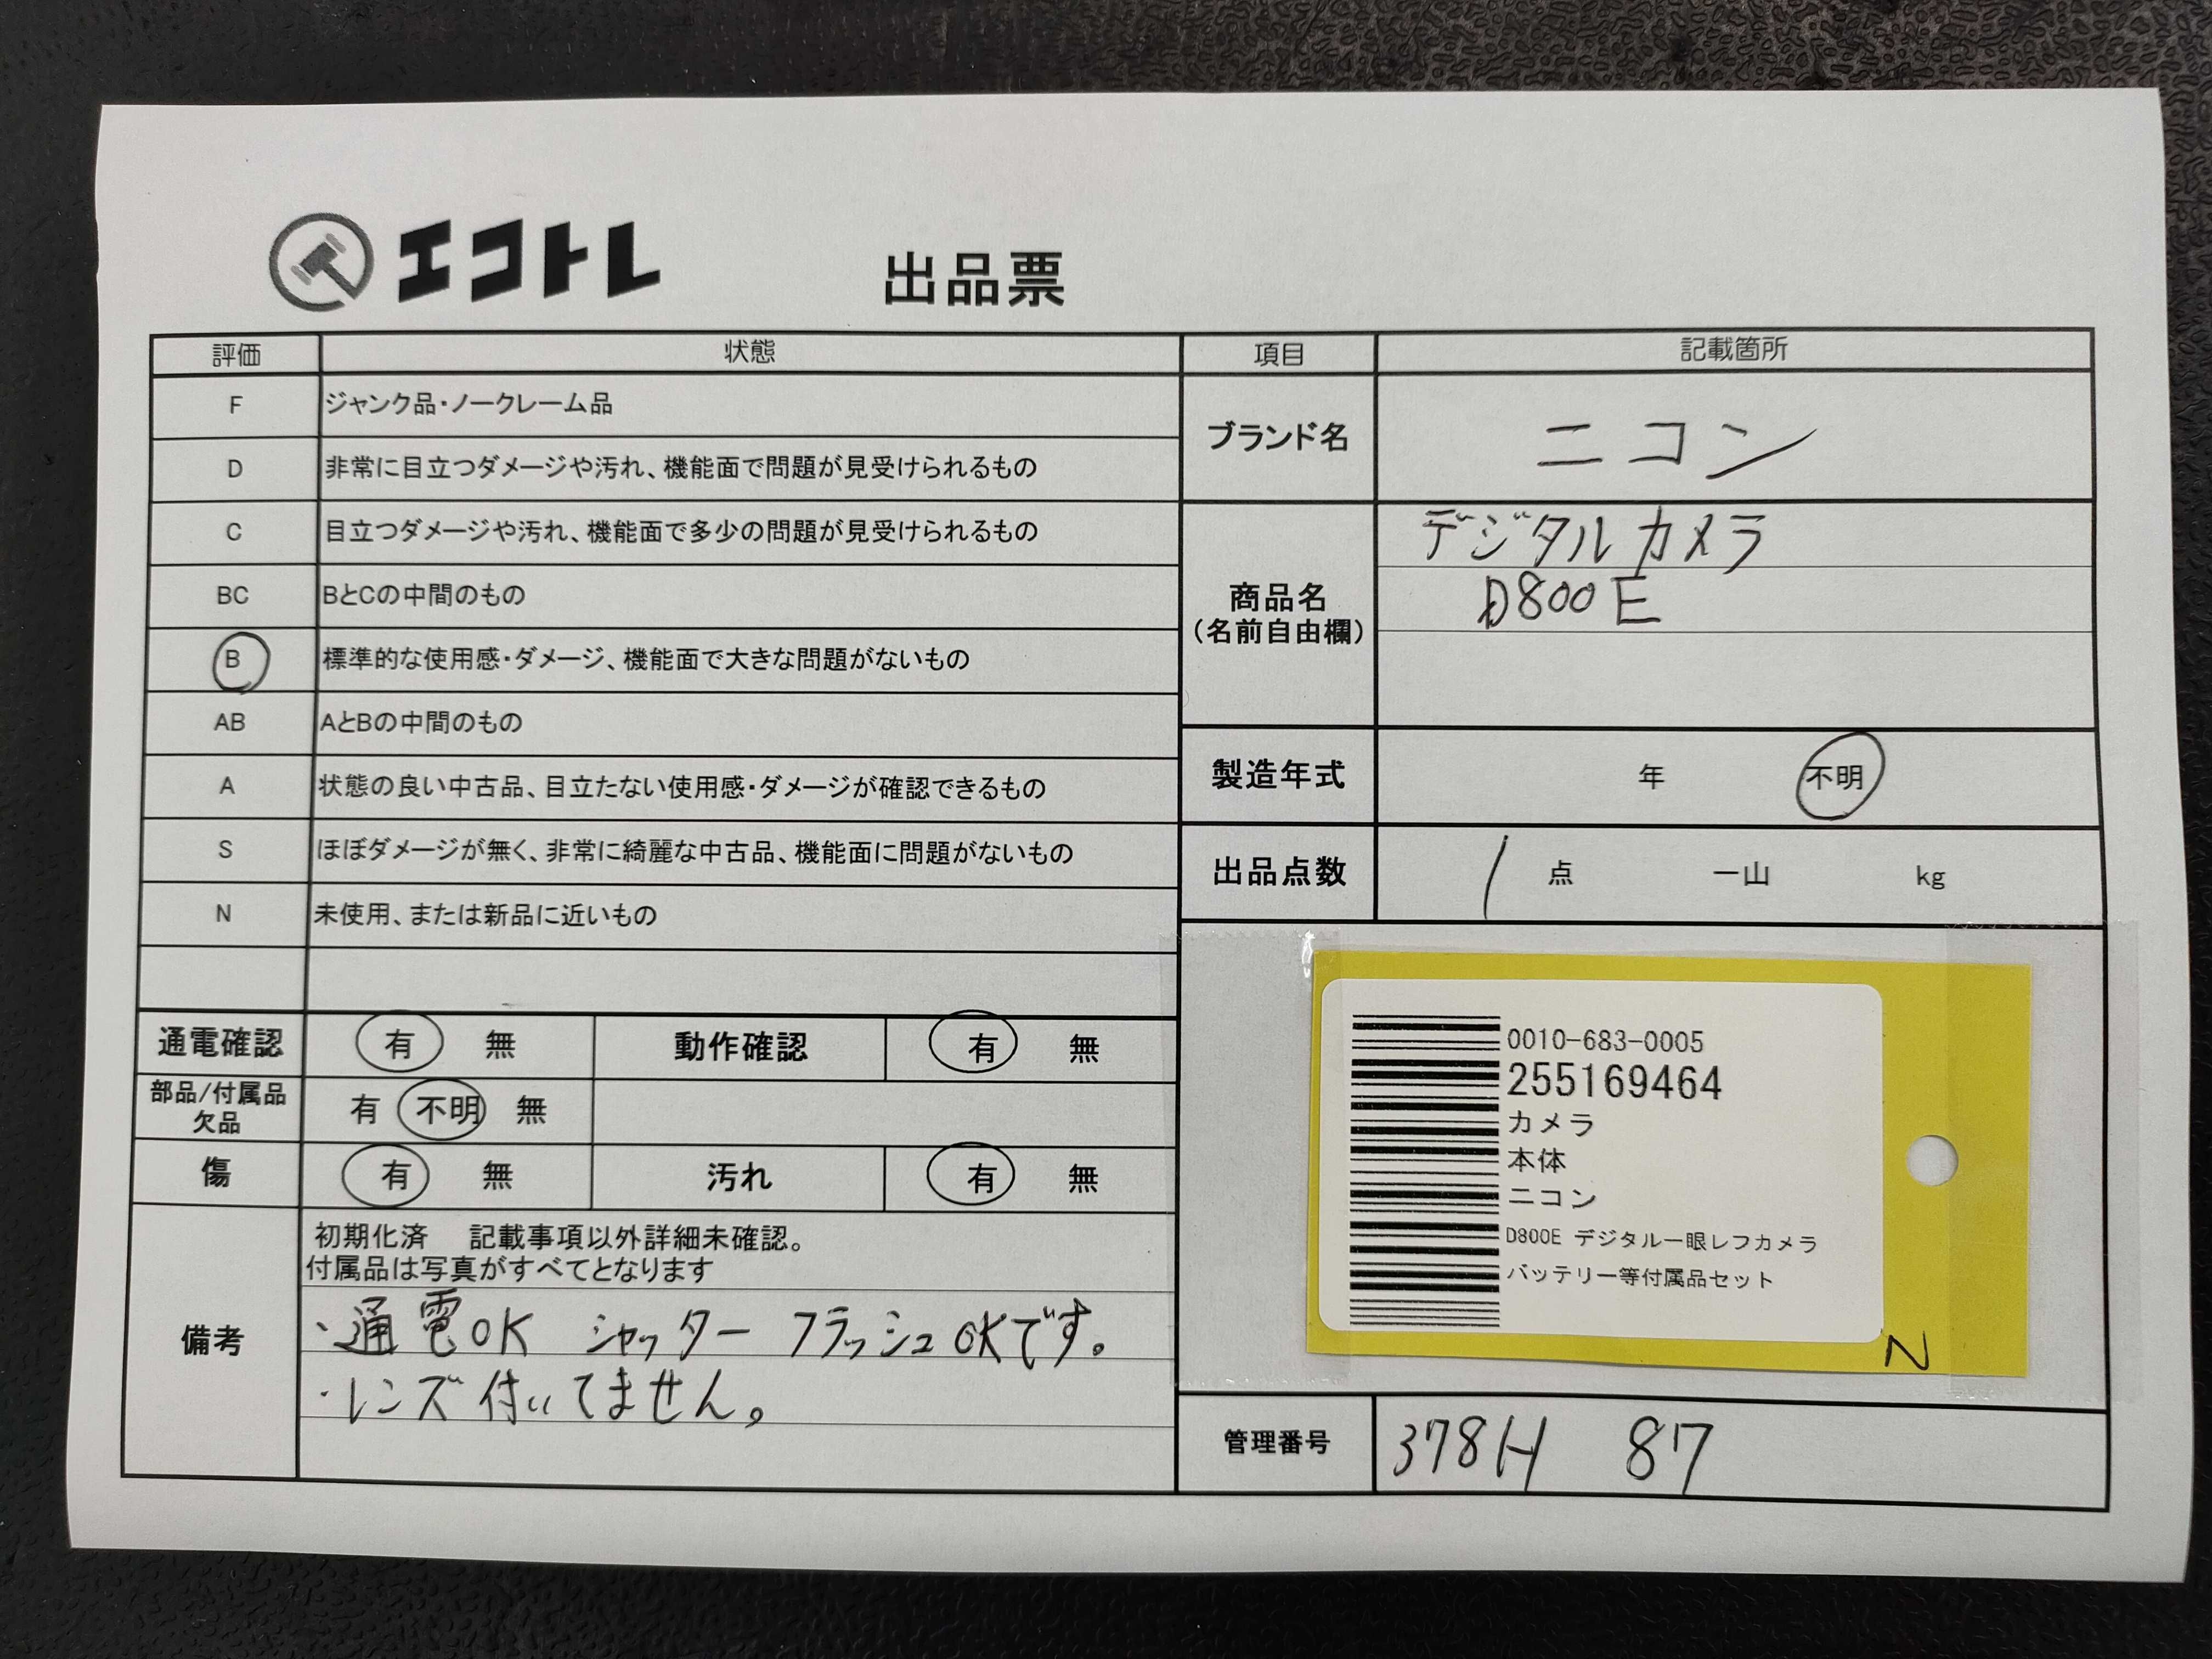 エコトレ
出品票
評価 状態
F ジャンク品・ノークレーム品
D 非常に目立つダメージや汚れ、機能面で問題が見受けられるもの
C 目立つダメージや汚れ、機能面で多少の問題が見受けられるもの
BC BとCの中間のもの
B 標準的な使用感・ダメージ、機能面で大きな問題がないもの
AB AとBの中間のもの
A 状態の良い中古品、目立たない使用感・ダメージが確認できるもの
S ほぼダメージが無く、非常に綺麗な中古品、機能面に問題がないもの
N 未使用、または新品に近いもの
通電確認 有 無 動作確認 有 無
部品/付属品
欠品
有 不明 無
傷 有 無 汚れ 有 無
備考
初期化済 記載事項以外詳細未確認。
付属品は写真がすべてとなります
・通電OK シャッター フラッシュOKです。
・レンズ付いてません。
項目 記載箇所
ブランド名 ニコン
商品名
(名前自由欄)
デジタルカメラ
D800E
製造年式 年 不明
出品点数 1 点 一山 kg
0010-683-0005
255169464
カメラ
本体
ニコン
D800E デジタル一眼レフカメラ
バッテリー等付属品セット
N
管理番号 378H 87